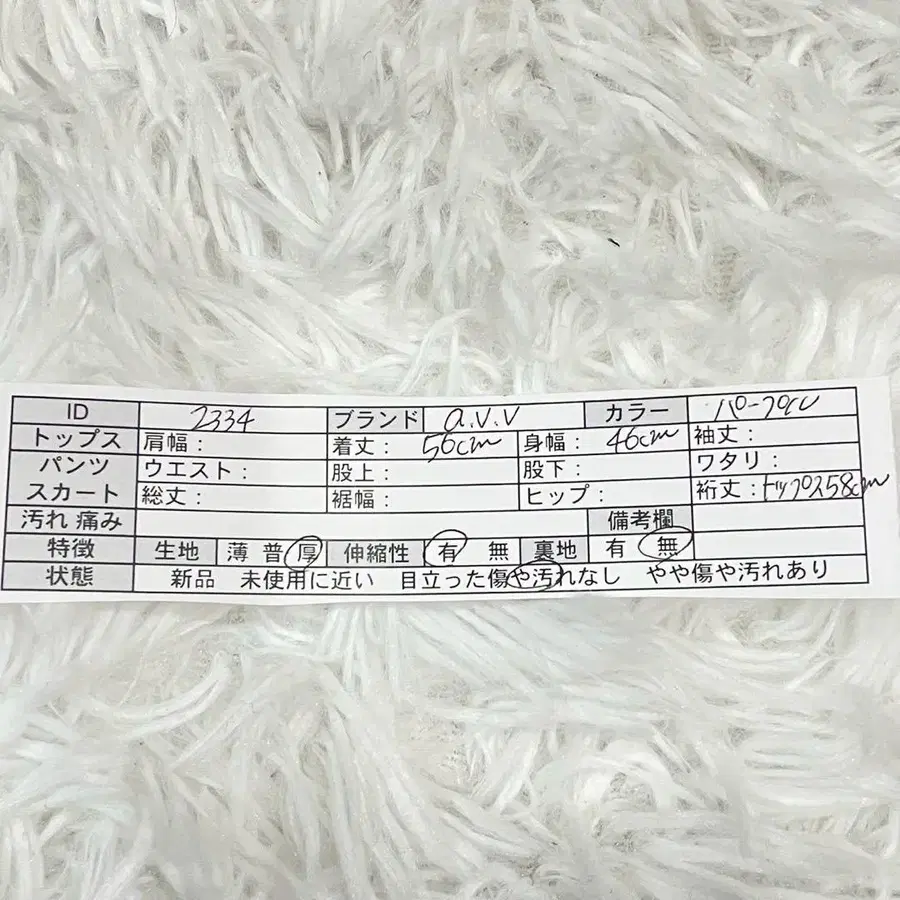 ID 2334 ブランド a.v.v カラー パープル
トップス 肩幅： 着丈：56cm 身幅：46cm 袖丈：
パンツ ウエスト： 股上： 股下： ワタリ：
スカート 総丈： 裾幅： ヒップ： 裄丈：トップス58cm
汚れ 痛み 備考欄
特徴 生地 薄 普 厚 伸縮性 有 無 裏地 有 無
状態 新品 未使用に近い 目立った傷や汚れなし やや傷や汚れあり